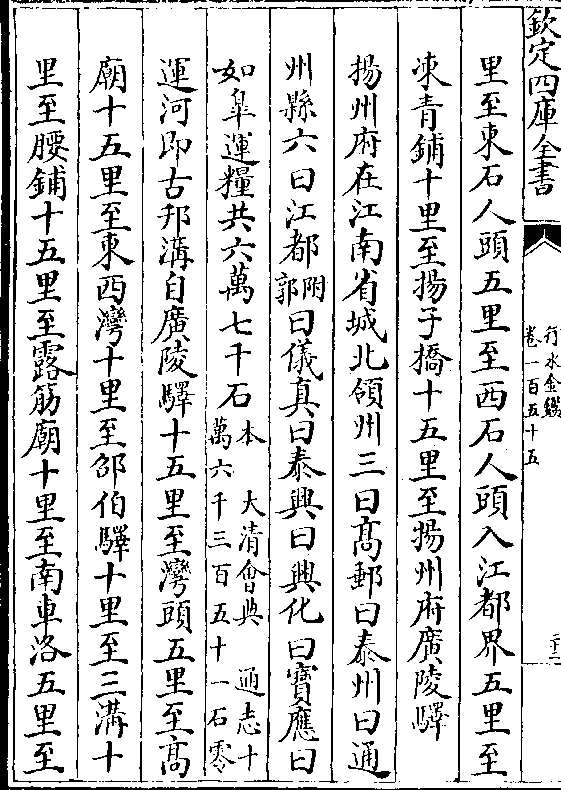 欽定四庫全書
行水金鑑
卷一百五十五
二十二
里至東石人頭五里至西石人頭入江都界五里至
凍青鋪十里至揚子橋十五里至揚州府廣陵驛
揚州府在江南省城北領州三曰髙郵曰泰州曰通
州縣六曰江都附郭曰儀真曰泰興曰興化曰寳應曰
如臯運糧共六萬七千石本 大清會典 通志十萬六千三百五十一石零
運河即古邗溝自廣陵驛十五里至灣頭五里至髙
廟十五里至東西灣十里至邵伯驛十里至三溝十
里至腰鋪十五里至露筋廟十里至南車洛五里至